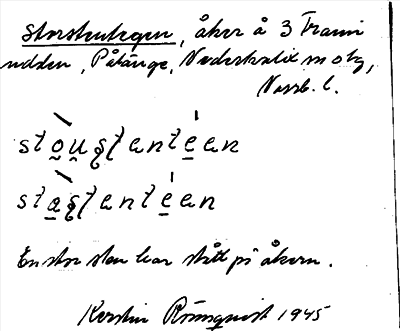 Storstentegen, åker å 3 Fram
udden, Pålänge, Nederkalix sn o tg,
Norrb. l.
stou̯stente̱en
sta̱stente̱en
En stor sten har stått på åkern.
Kerstin Rönnqvist 1945